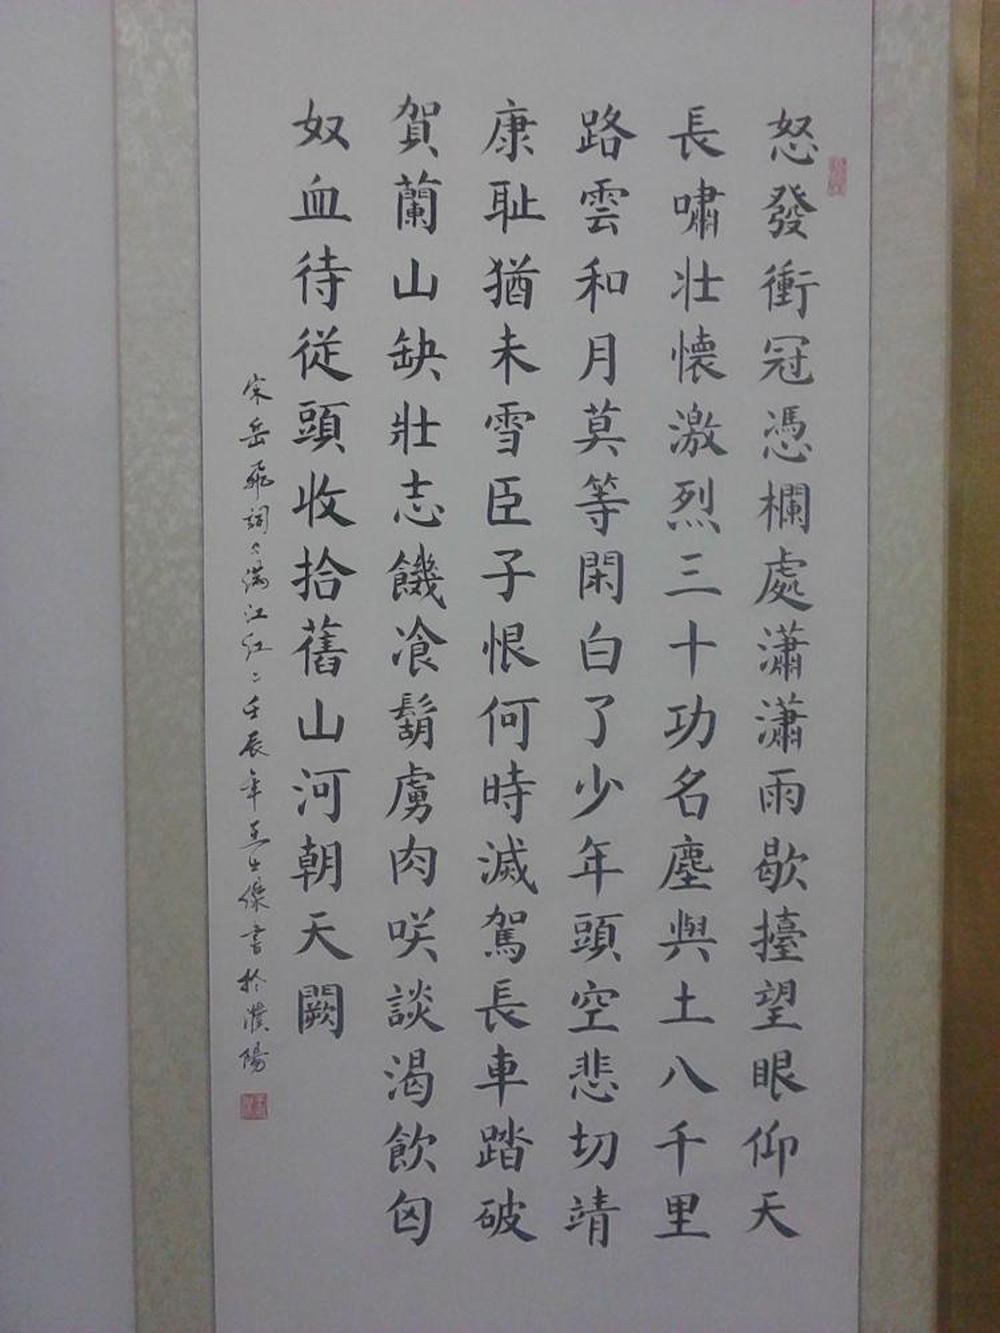 怒發衝冠憑欄處瀟瀟雨歇擡望眼仰天
長嘯壮懐激烈三十功名塵與土八千里
路雲和月莫等閑白了少年頭空悲切靖
康耻猶未雪臣子恨何時滅駕長車踏破
賀蘭山缺壯志饑飡鬍虜肉咲談渴飲匈
奴血待従頭收拾舊山河朝天闕
宋岳飛詞々滿江红々壬辰年王生傑書於濮陽